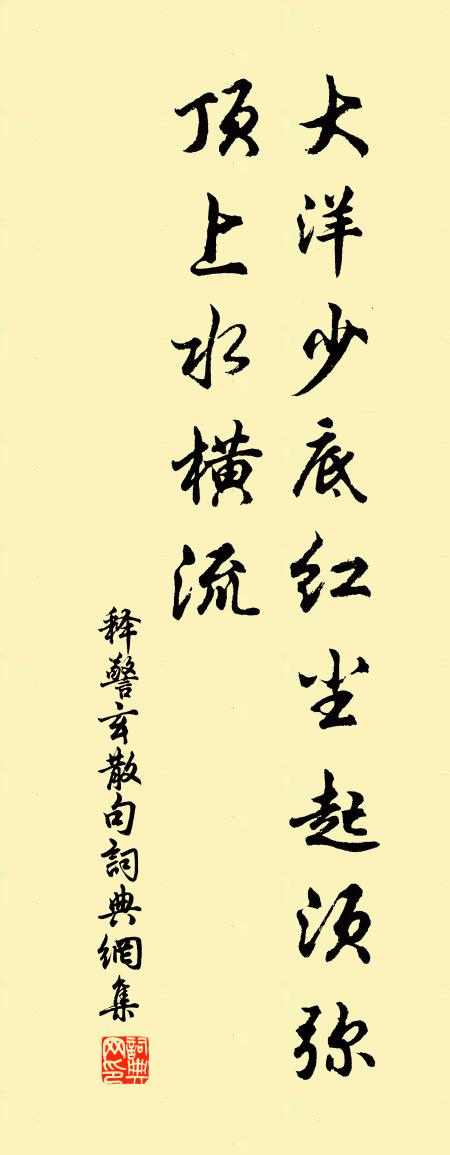 大洋少底红尘起须弥
顶上水横流
释警玄散句詞典網集
詞典网印